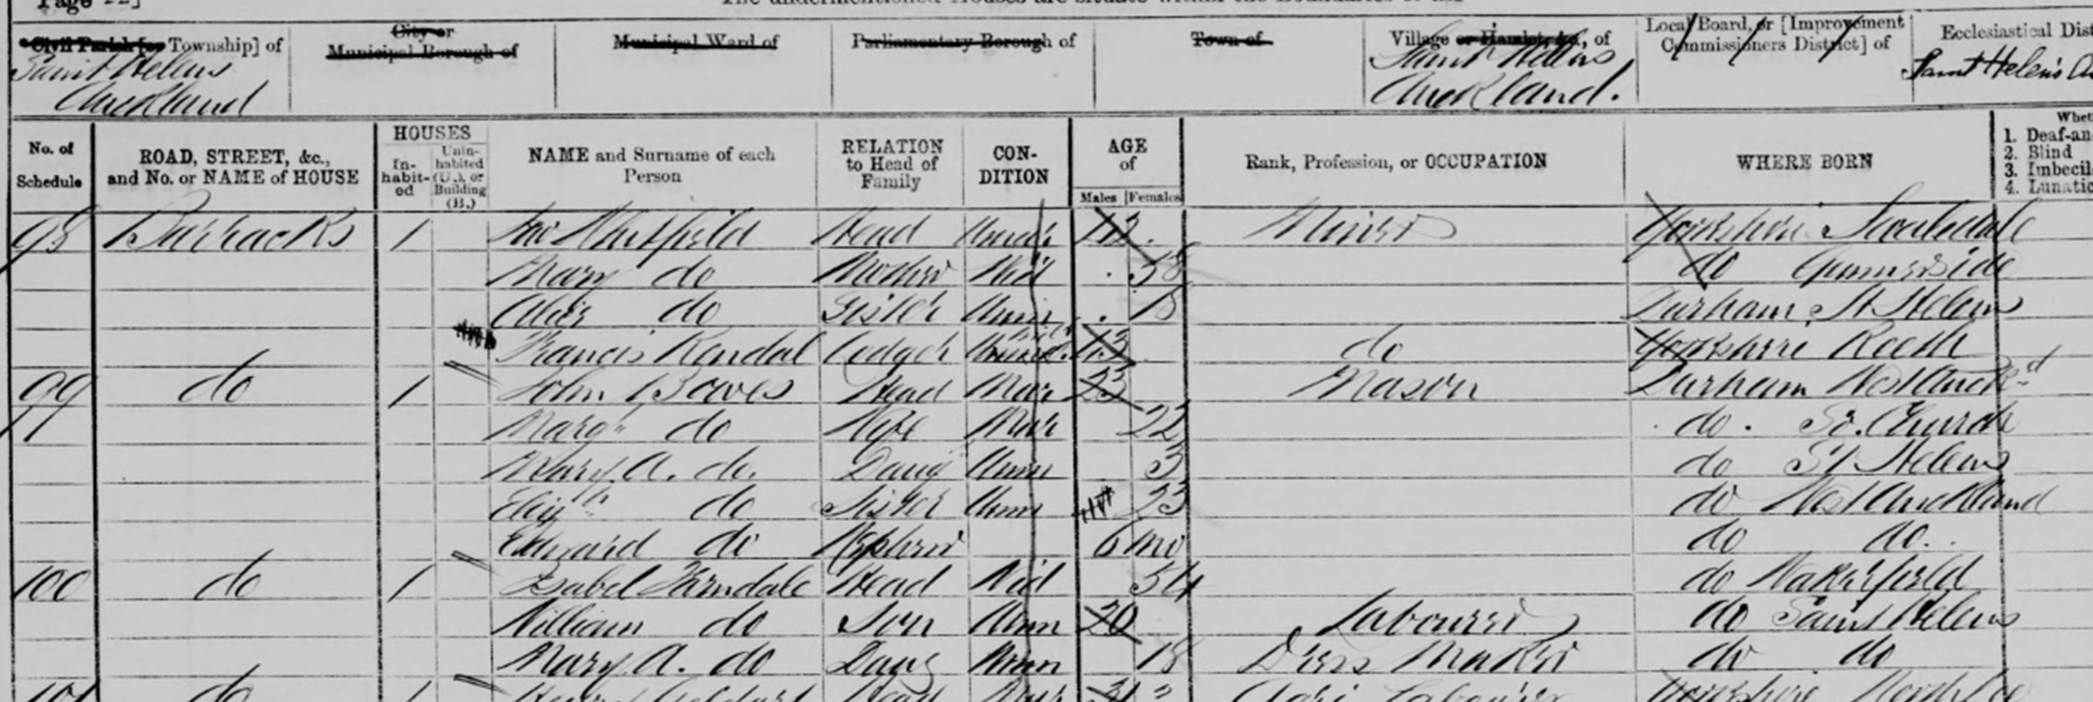 Page 22]
The undermentioned Houses are situate within the Boundaries of the
Civil Parish [or Township] of Saint Helens Auckland
City or Municipal Borough of
Municipal Ward of
Parliamentary Borough of
Town of
Village or Hamlet, &c., of Saint Helens Auckland.
Local Board, or [Improvement Commissioners District] of
Ecclesiastical Dist
Saint Helen's Au
No. of Schedule
ROAD, STREET, &c., and No. or NAME of HOUSE
HOUSES
In-habit-ed
Unin-habited (U.), or Building (B.)
NAME and Surname of each Person
RELATION to Head of Family
CON-DITION
AGE of
Males Females
Rank, Profession, or OCCUPATION
WHERE BORN
Whet
1. Deaf-an
2. Blind
3. Imbecil
4. Lunatic
98 Barracks 1 Head Miner Yorkshire Swaledale
Mary do Mother Wid 58 do Gunnerside
Alice do Sister Unm 18 Durham St Helens
Francis Kendal Lodger 43 do Yorkshire Reeth
99 do 1 John Head Mar 23 Mason Durham West Auckd
Margt do Wife Mar 22 do So. Church
Mary A. do Daug Unm 3 do St Helens
Elizth do Sister Unm 23 do West Auckland
Edward do Nephew 6 mo do do
100 do 1 Isabel Farndale Head Wid 54 do Wakerfield
William do Son Unm 20 Labourer do Saint Helens
Mary A. do Daug Unm 18 Dress Maker do do
101 do 1 Head Mar 31 Labourer Yorkshire